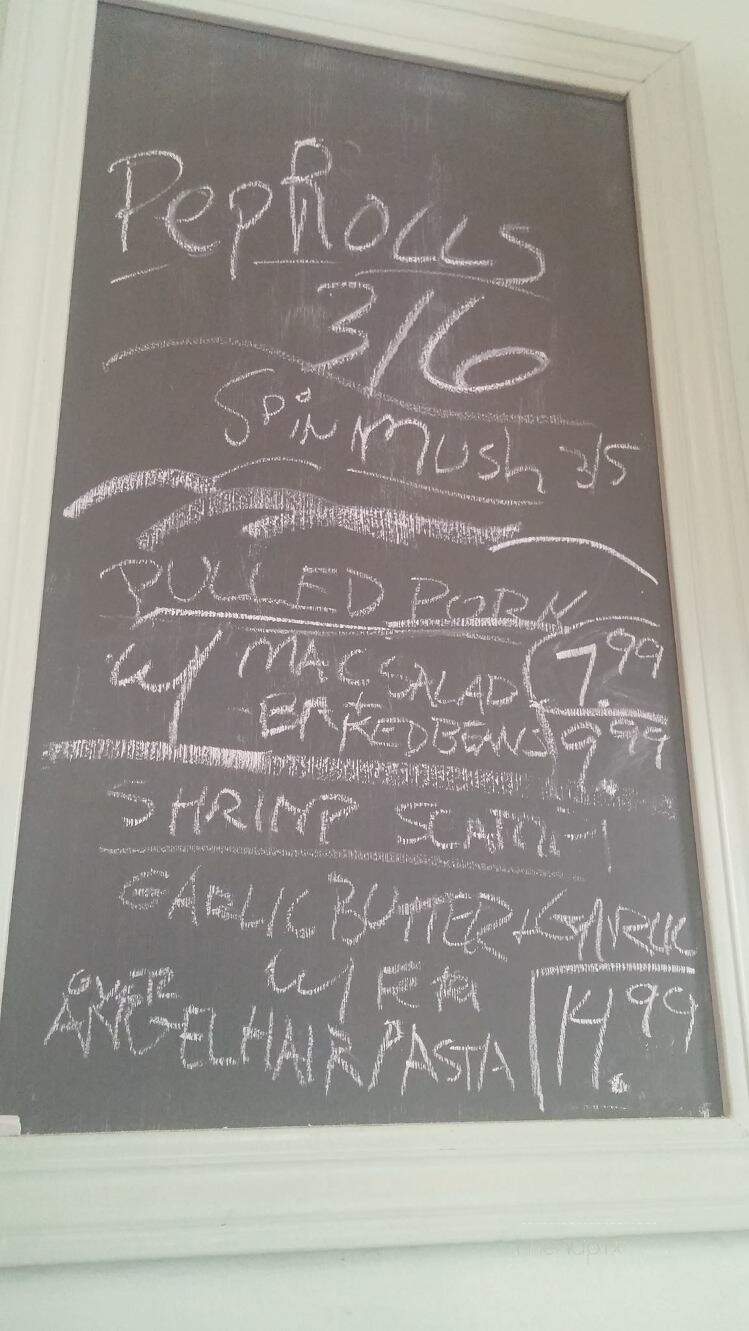 PepRolls
3/6
SPiN MUSh 3/5
PULLED PORK
w/ MAC SALAD 7.99
BAKED BEANS 9.99
SHRIMP SCAMPI
GARLIC BUTTER + GARLIC
w/
OVER
ANGELHAIR PASTA 14.99